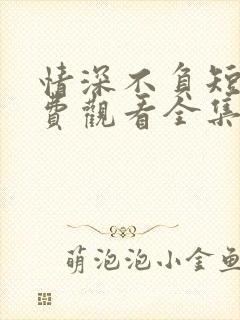 情深不負短
費觀看全集
萌泡泡小金魚